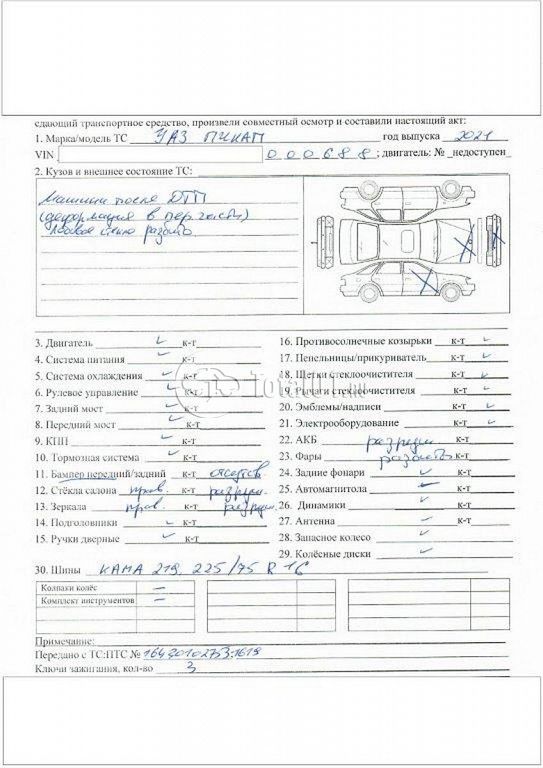 сдающий транспортное средство, произвели совместный осмотр и составили настоящий акт:
1. Марка/модель ТС УАЗ ПИКАП год выпуска 2021
VIN 000688; двигатель: № недоступен
2. Кузов и внешнее состояние ТС:
Машина после ДТП
(деформация в пер. части)
лобовое стекло разбито
3. Двигатель ✓ к-т
4. Система питания ✓ к-т
5. Система охлаждения ✓ к-т
6. Рулевое управление ✓ к-т
7. Задний мост ✓ к-т
8. Передний мост ✓ к-т
9. КПП ✓ к-т
10. Тормозная система ✓ к-т
11. Бампер передний/задний к-т отсутств
12. Стёкла салона прав. к-т
13. Зеркала прав. к-т
14. Подголовники ✓ к-т
15. Ручки дверные ✓ к-т
16. Противосолнечные козырьки к-т ✓
17. Пепельницы/прикуриватель к-т ✓
18. Щетки стеклоочистителя к-т ✓
19. Рычаги стеклоочистителя к-т ✓
20. Эмблемы/надписи ✓ к-т
21. Электрооборудование ✓ к-т
22. АКБ к-т
23. Фары разбиты к-т
24. Задние фонари ✓ к-т
25. Автомагнитола ✓ к-т
26. Динамики ✓ к-т
27. Антенна ✓ к-т
28. Запасное колесо ✓
29. Колёсные диски ✓
30. Шины КАМА 219 225/75 R 16
Колпаки колёс –
Комплект инструментов –
Примечание:
Передано с ТС:ПТС № 164301027531619
Ключи зажигания, кол-во 3